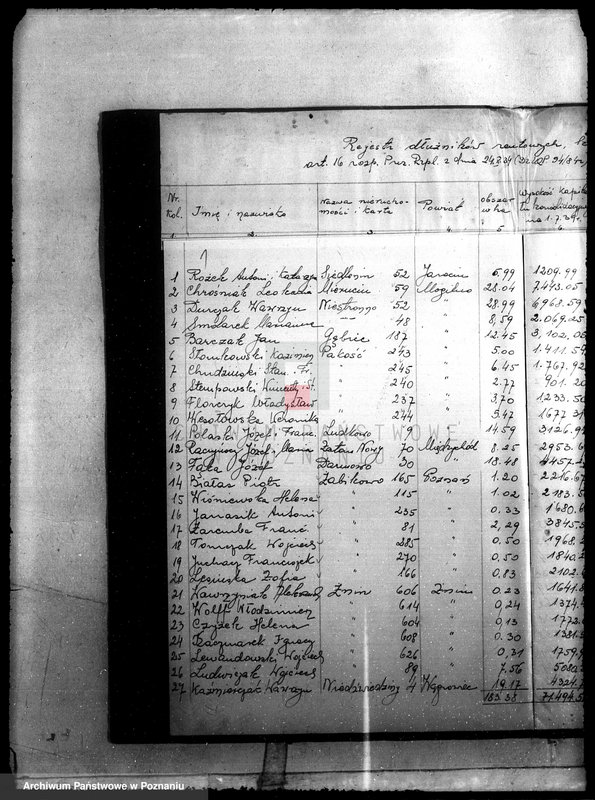 Rejestr dłużników rentowych,
art. 16 rozp. Prez. Rzpl. z dnia 24.X.34
Nr. kol. Imię i nazwisko Nazwa nierucho-mości i karta Powiat obszar w ha Wysokość kapita
1 2. 3 4. 5 6.
1 Rożek Antoni i Katarzyna Siedlemin 52 Jarocin 5,99 1209.99
2 Chrośniak Leokadia 59 Mogilno 28.04 7443.05
3 Wawrzyn 52 " 28.99 6968.59
4 Smolarek Marianna " 48 " 8,59 2.069.25
5 Barczak Jan Gębice 187 " 12.45 3,102.05
6 Kazimierz Pakość 243 " 5.00 1.411.59
7 Chudziński Stan. Fr. " 245 " 6.45 1.767.92
8 Stempowski " 240 " 2.77 901.20
9 Florczyk Władysław " 237 " 3,70 1233.50
10 Wesołowska Weronika " 244 " 5.47 1677.31
11 Polaski Józef i Franc. Ludkowo 9 " 14.59 3126.9
12 Józef i Maria Zatom Nowy 70 Międzychód 8.25 2953.6
13 Fąka Józef 30 " 18.48 4457.2
14 Białas Piotr Żabikowo 165 Poznań 1.20 2216.67
15 Wiśniewska Helena " 115 " 1.02 2183.5
16 Antoni " 235 " 0.33 1680.6
17 Zaremba Franc. " 81 " 2,29 3845.5
18 Tomczak Wojciech " 285 " 0.50 1968.2
19 Franciszek " 270 " 0.50 1840.2
20 Zofia " 166 " 0.83 2102.
21 Nawrzyniak Aleksand. Żnin 606 Żnin 0.23 1641.8
22 Wolff Włodzimierz " 614 " 0,24 1374.
23 Czyżek Helena " 604 " 0,13 1772.
24 Kaczmarek Ignacy " 608 " 0.30 1381.2
25 Lewandowski Wojciech " 626 " 0,31 1759.9
26 Ludwiczak Wojciech " 89 " 7.56 5080.
27 Kaźmierczak Wawrzyn Niedźwiedziny 4 Wągrowiec 19.17 4324.
183.38 71.494.5
Archiwum Państwowe w Poznaniu